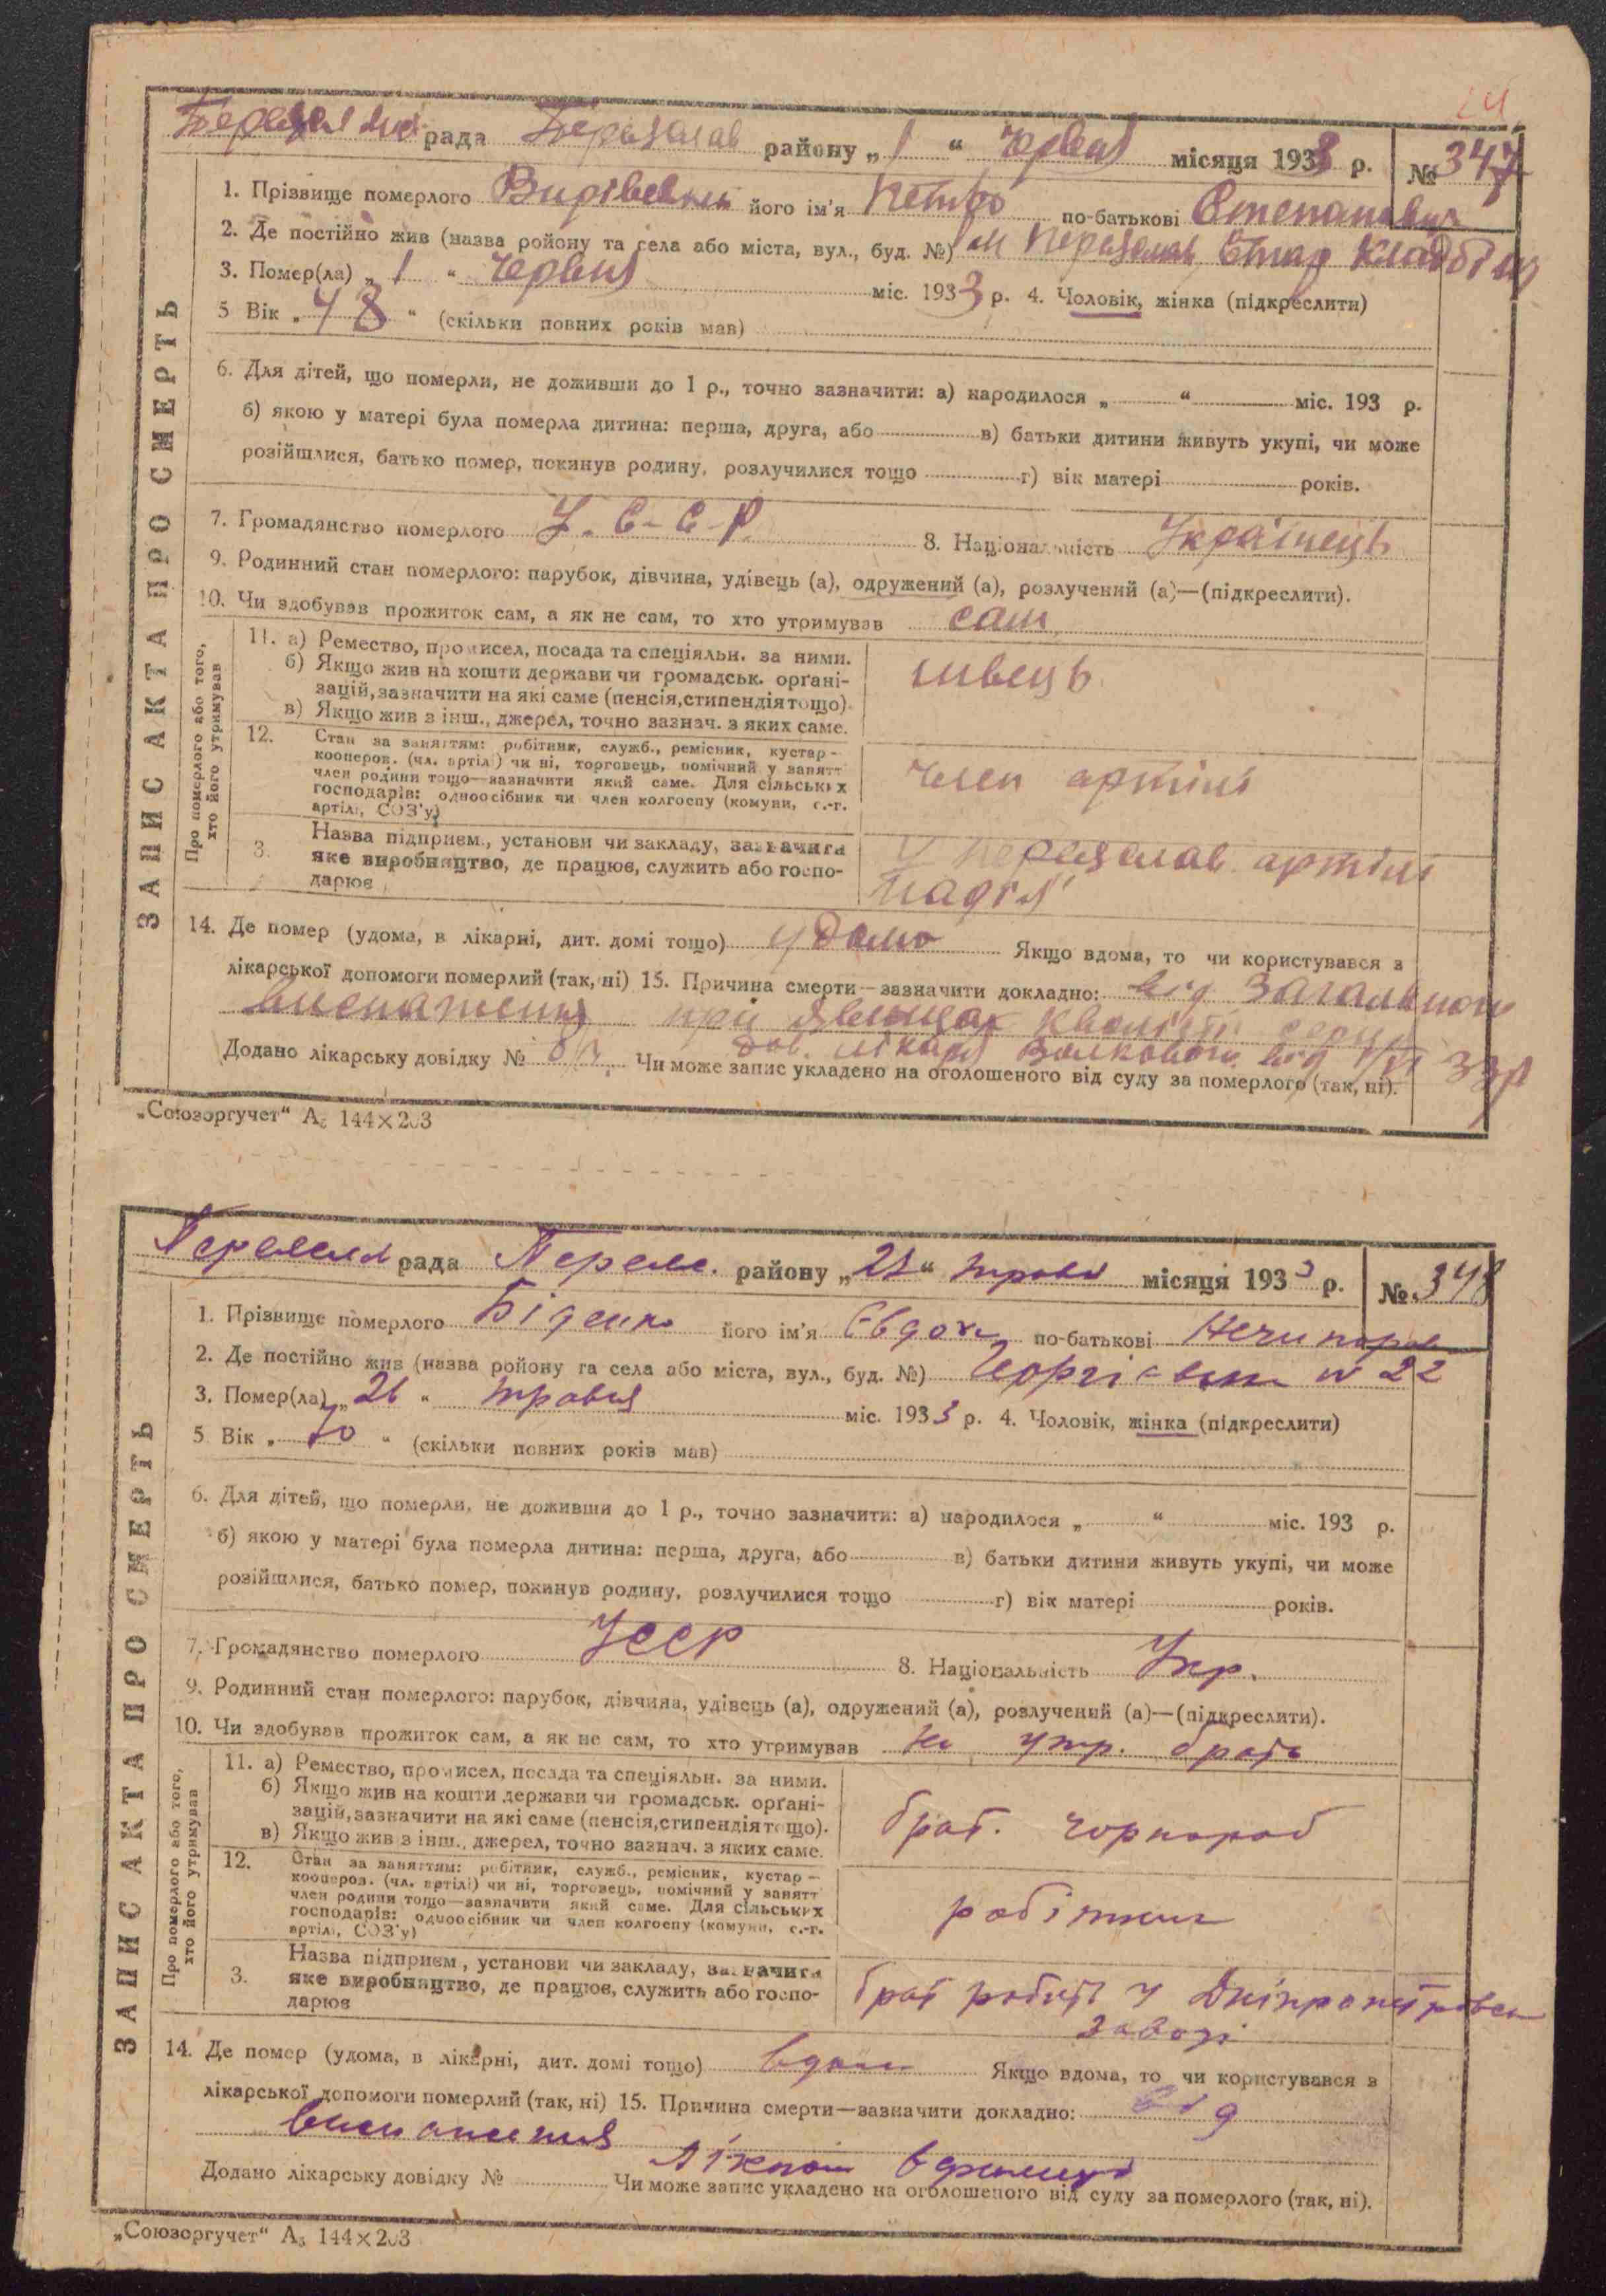 рада Переяслав району „1“ Червня місяця 1933 р. № 347
ЗАПИС АКТА ПРО СМЕРТЬ
1. Прізвище померлого його ім'я Петро по-батькові Степанович
2. Де постійно жив (назва ройону та села або міста, вул., буд. №) м Переяслав
3. Помер(ла) „1“ Червня міс. 1933 р. 4. Чоловік, жінка (підкреслити)
5 Вік „48“ (скільки повних років мав)
6. Для дітей, що померли, не доживши до 1 р., точно зазначити: а) народилося „ “ міс. 193 р.
б) якою у матері була померла дитина: перша, друга, або в) батьки дитини живуть укупі, чи може
розійшлися, батько помер, покинув родину, розлучилися тощо г) вік матері років.
7. Громадянство померлого У. С-С-Р. 8. Національність Українець
9. Родинний стан померлого: парубок, дівчина, удівець (а), одружений (а), розлучений (а)—(підкреслити).
10. Чи здобував прожиток сам, а як не сам, то хто утримував сам
Про померлого або того, хто його утримував
11. а) Ремество, промисел, посада та спеціяльн. за ними.
б) Якщо жив на кошти держави чи громадськ. орґані-
зацій, зазначити на які саме (пенсія, стипендія тощо).
в) Якщо жив з інш., джерел, точно зазнач. з яких саме.
швець
12. Стан за заняттям: робітник, служб., ремісник, кустар-
кооперов. (чл. артілі) чи ні, торговець, помічний у занятт
член родини тощо—зазначити який саме. Для сільських
господарів: одноосібник чи член колгоспу (комуни, с.-г.
артілі, СОЗ'у)
член артілі
3. Назва підприєм., установи чи закладу, зазначити
яке виробництво, де працює, служить або госпо-
дарює
У Переяслав артілі
Надія
14. Де помер (удома, в лікарні, дит. домі тощо) удома Якщо вдома, то чи користувався з
лікарської допомоги померлий (так, ні) 15. Причина смерти—зазначити докладно: від загального
виснаження при явищах серця
Дов. лікаря
Додано лікарську довідку № Чи може запис укладено на оголошеного від суду за померлого (так, ні).
„Союзоргучет“ А₅ 144×203
рада Переяс. району „28“ травн місяця 1933 р. № 348
ЗАПИС АКТА ПРО СМЕРТЬ
1. Прізвище померлого Біденко його ім'я Євдох по-батькові Нечипоров
2. Де постійно жив (назва ройону та села або міста, вул., буд. №) № 22
3. Помер(ла) „26“ травня міс. 1933 р. 4. Чоловік, жінка (підкреслити)
5 Вік „70“ (скільки повних років мав)
6. Для дітей, що померли, не доживши до 1 р., точно зазначити: а) народилося „ “ міс. 193 р.
б) якою у матері була померла дитина: перша, друга, або в) батьки дитини живуть укупі, чи може
розійшлися, батько помер, покинув родину, розлучилися тощо г) вік матері років.
7. Громадянство померлого УССР 8. Національність Укр.
9. Родинний стан померлого: парубок, дівчина, удівець (а), одружений (а), розлучений (а)—(підкреслити).
10. Чи здобував прожиток сам, а як не сам, то хто утримував на утр. брата
Про померлого або того, хто його утримував
11. а) Ремество, промисел, посада та спеціяльн. за ними.
б) Якщо жив на кошти держави чи громадськ. орґані-
зацій, зазначити на які саме (пенсія, стипендія тощо).
в) Якщо жив з інш., джерел, точно зазнач. з яких саме.
брат. чорнороб
12. Стан за заняттям: робітник, служб., ремісник, кустар-
кооперов. (чл. артілі) чи ні, торговець, помічний у занятт
член родини тощо—зазначити який саме. Для сільських
господарів: одноосібник чи член колгоспу (комуни, с.-г.
артілі, СОЗ'у)
робітник
3. Назва підприєм., установи чи закладу, зазначити
яке виробництво, де працює, служить або госпо-
дарює
брат робить у Дніпропетровськ
заводі
14. Де помер (удома, в лікарні, дит. домі тощо) вдома Якщо вдома, то чи користувався з
лікарської допомоги померлий (так, ні) 15. Причина смерти—зазначити докладно: від
виснаження
Додано лікарську довідку № Чи може запис укладено на оголошеного від суду за померлого (так, ні).
„Союзоргучет“ А₅ 144×203